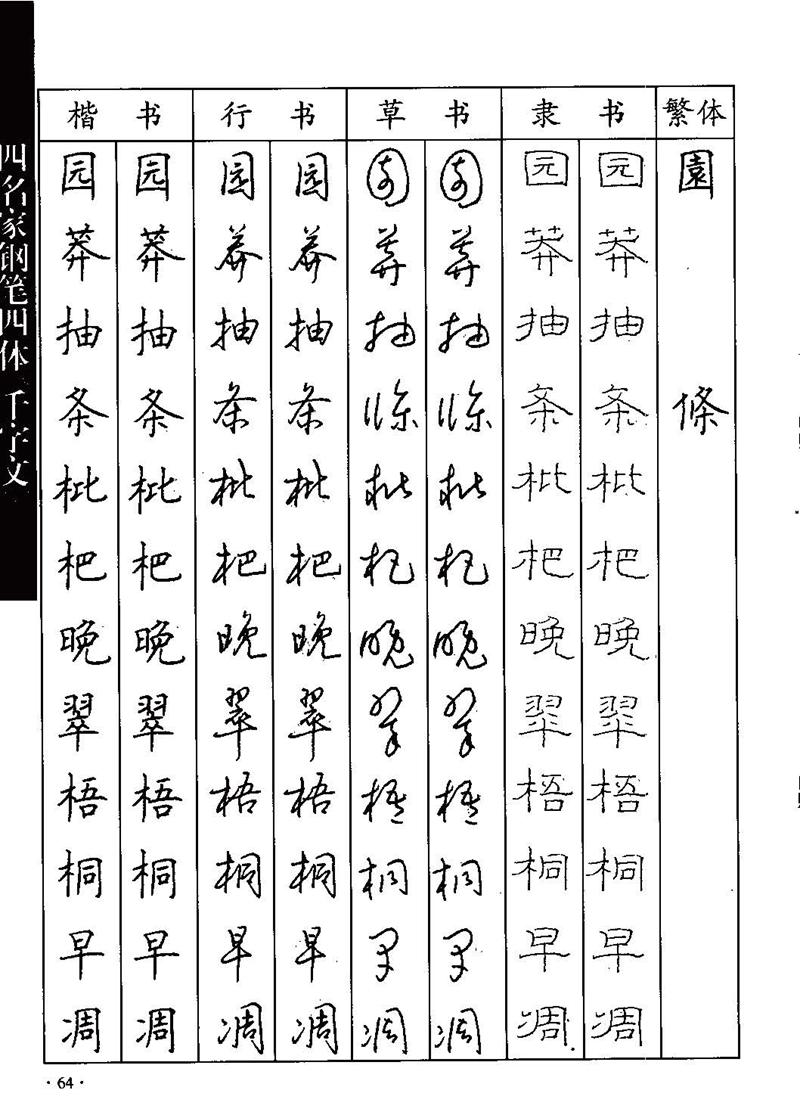 四名家钢笔四体千字文
楷书 行书 草书 隶书 繁体
园 园 园 园 园 园 园 园 園
莽 莽 莽 莽 莽 莽 莽 莽
抽 抽 抽 抽 抽 抽 抽 抽
条 条 条 条 条 条 条 条 條
枇 枇 枇 枇 枇 枇 枇 枇
杷 杷 杷 杷 杷 杷 杷 杷
晚 晚 晚 晚 晚 晚 晚 晚
翠 翠 翠 翠 翠 翠 翠 翠
梧 梧 梧 梧 梧 梧 梧 梧
桐 桐 桐 桐 桐 桐 桐 桐
早 早 早 早 早 早 早 早
凋 凋 凋 凋 凋 凋 凋 凋
·64·